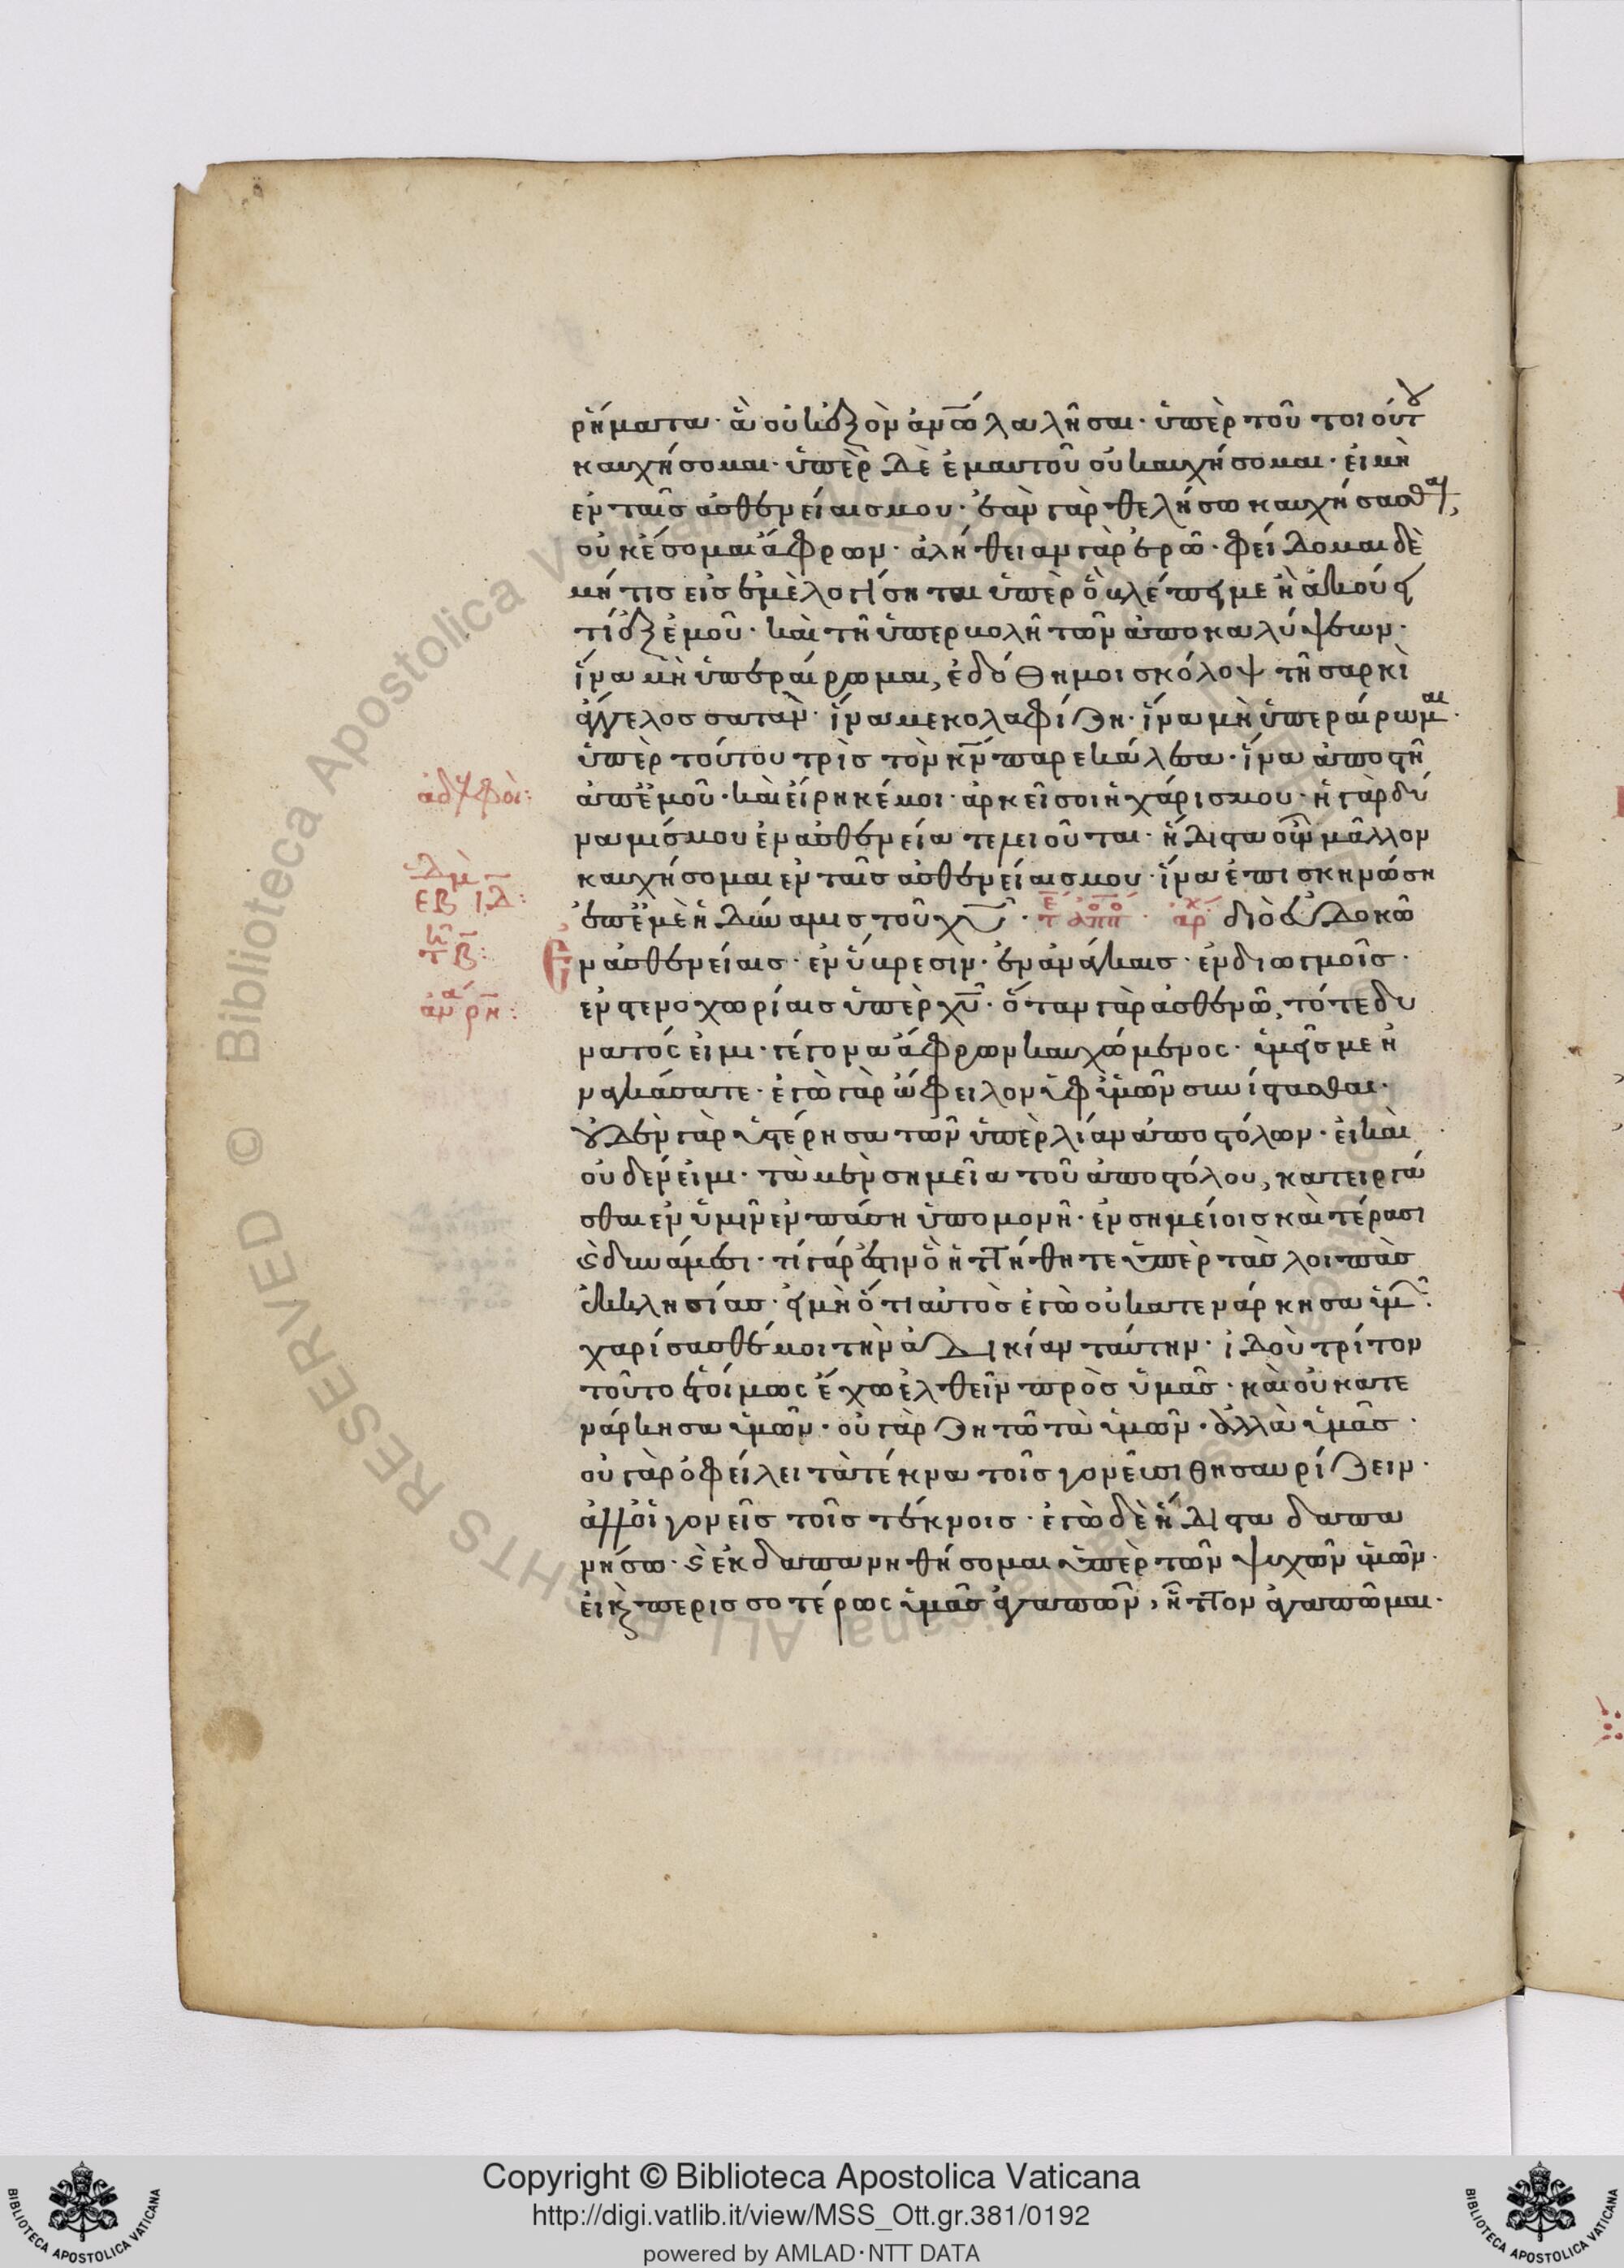 ῥήματα· ἃ οὐκ ἐξὸν ἀνῶ λαλῆσαι· ὑπὲρ τοῦ τοιούτου
καυχήσομαι· ὑπὲρ δὲ ἐμαυτοῦ οὐ καυχήσομαι· εἰ μὴ
ἐν ταῖς ἀσθενείαις μου· ἐὰν γὰρ θελήσω καυχήσασθαι,
οὐκ ἔσομαι ἄφρων· ἀλήθειαν γὰρ ἐρῶ· φείδομαι δὲ
μή τις εἰς ἐμὲ λογίσηται ὑπὲρ ὃ βλέπει με ἢ ἀκούει
τί ἐξ ἐμοῦ· καὶ τῇ ὑπερβολῇ τῶν ἀποκαλύψεων·
ἵνα μὴ ὑπεραίρωμαι, ἐδόθη μοι σκόλοψ τῇ σαρκὶ
ἄγγελος σατὰν· ἵνα με κολαφίζη· ἵνα μὴ ὑπεραίρωμαι·
ὑπὲρ τούτου τρὶς τὸν κν παρεκάλεσα· ἵνα ἀποστῆ
ἀπ ἐμοῦ· καὶ εἴρηκέ μοι· ἀρκεῖ σοι ἡ χάρις μου· ἡ γὰρ δύ
ναμις μου ἐν ἀσθενεία τελειοῦται· ἥδιστα οὖν μᾶλλον
καυχήσομαι ἐν ταῖς ἀσθενείαις μου· ἵνα ἐπισκηνώση
ἐπ ἐμὲ ἡ δύναμις τοῦ χυ· διὸ εὐδοκῶ
ἐν ἀσθενείαις· ἐν ὕβρεσιν· ἐν ἀνάγκαις· ἐν διωγμοῖς·
ἐν στενοχωρίαις ὑπὲρ χυ· ὅταν γὰρ ἀσθενῶ, τότε δυ
νατός εἰμι· γέγονα ἄφρων καυχώμενος· ὑμεῖς με ἠ
ναγκάσατε· ἐγὼ γὰρ ὤφειλον ὑφ ὑμῶν συνίστασθαι·
οὐδὲν γὰρ ὑστέρησα τῶν ὑπὲρ λίαν ἀποστόλων· εἰ καὶ
οὐδέν εἰμι· τὰ μὲν σημεῖα τοῦ ἀποστόλου, κατειργά
σθαι ἐν ὑμῖν ἐν πάση ὑπομονῆ· ἐν σημείοις καὶ τέρασι
καὶ δυνάμεσι· τί γάρ ἐστιν ὃ ἡττήθητε ὑπὲρ τὰς λοιπὰς
ἐκκλησίας· εἰ μὴ ὅτι αὐτὸς ἐγὼ οὐ κατενάρκησα ὑμῶν·
χαρίσασθέ μοι τὴν ἀδικίαν ταύτην· ἰδοὺ τρίτον
τοῦτο ἑτοίμως ἔχω ἐλθεῖν πρὸς ὑμᾶς· καὶ οὐ κατε
νάρκησα ὑμῶν· οὐ γὰρ ζητῶ τὰ ὑμῶν· ἀλλὰ ὑμᾶς·
οὐ γὰρ ὀφείλει τὰ τέκνα τοῖς γονεῦσι θησαυρίζειν·
ἀλλ οἱ γονεῖς τοῖς τέκνοις· ἐγὼ δὲ ἥδιστα δαπα
νήσω· καὶ ἐκδαπανηθήσομαι ὑπὲρ τῶν ψυχῶν ὑμῶν·
εἰ καὶ περισσοτέρως ὑμᾶς ἀγαπῶν, ἧττον ἀγαπῶμαι·
ἀδελφοὶ:
Copyright © Biblioteca Apostolica Vaticana
http://digi.vatlib.it/view/MSS_Ott.gr.381/0192
powered by AMLAD·NTT DATA
BIBLIOTECA APOSTOLICA VATICANA
BIBLIOTECA APOSTOLICA VATICANA